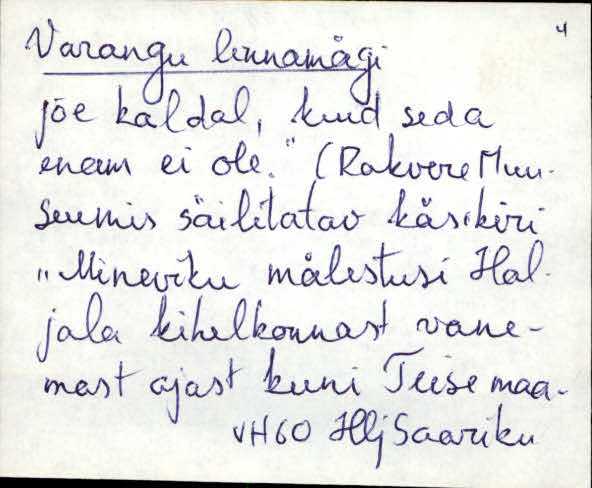 4
Varangu linnamägi
jõe kaldal, kuid seda
enam ei ole." (Rakvere Muu-
seumis säilitatav käsikiri
„Mineviku mälestusi Hal-
jala kihelkonnast vane-
mast ajast kuni Teise maa-
VH60 Hlj Saariku